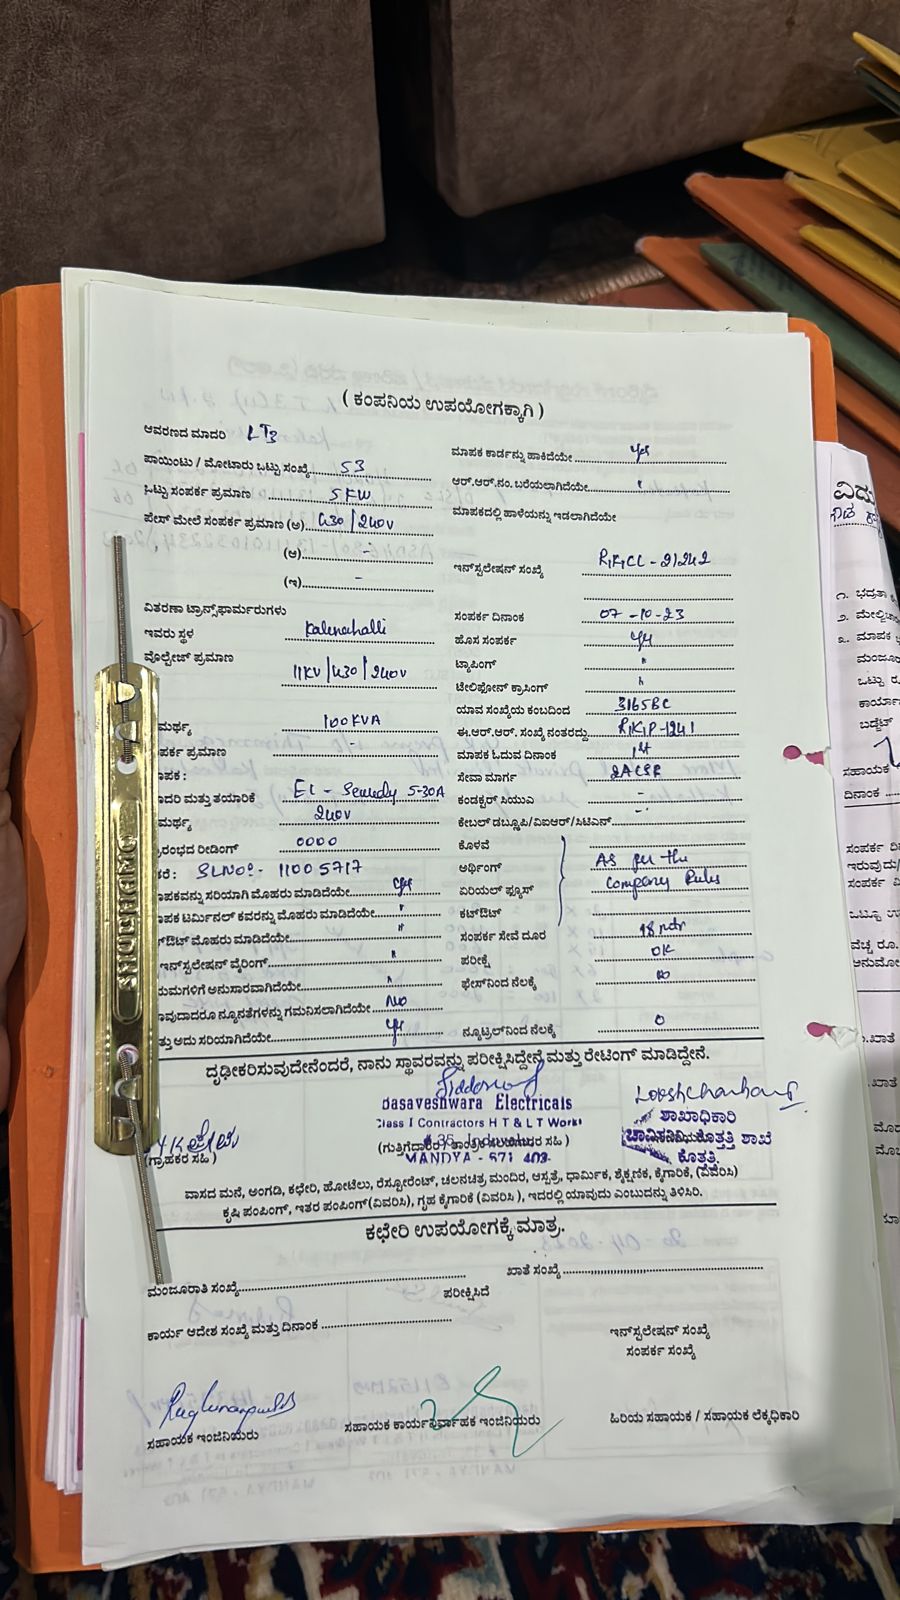 ( ಕಂಪನಿಯ ಉಪಯೋಗಕ್ಕಾಗಿ )
ಆವರಣದ ಮಾದರಿ LT3
ಪಾಯಿಂಟು / ಮೋಟಾರು ಒಟ್ಟು ಸಂಖ್ಯೆ 53
ಒಟ್ಟು ಸಂಪರ್ಕ ಪ್ರಮಾಣ 5KW
ಪೇಸ್ ಮೇಲೆ ಸಂಪರ್ಕ ಪ್ರಮಾಣ (ಅ) 430/240V
(ಆ) -
(ಇ) -
ವಿತರಣಾ ಟ್ರಾನ್ಸ್‌ಫಾರ್ಮರುಗಳು
ಇವರು ಸ್ಥಳ Kalenahalli
ವೊಲ್ಟೇಜ್ ಪ್ರಮಾಣ
11KV/430/240V
ಮರ್ಥ್ಯ 100KVA
ಪರ್ಕ ಪ್ರಮಾಣ -
ಾಪಕ :
ಾದರಿ ಮತ್ತು ತಯಾರಿಕೆ 5-30A
ಮರ್ಥ್ಯ 240V
ರಂಭದ ರೀಡಿಂಗ್ 0000
ಕರೆ : SLNo:- 11005717
ಾಪಕವನ್ನು ಸರಿಯಾಗಿ ಮೊಹರು ಮಾಡಿದೆಯೇ yes
ಾಪಕ ಟರ್ಮಿನಲ್ ಕವರನ್ನು ಮೊಹರು ಮಾಡಿದೆಯೇ "
ಔಟ್ ಮೊಹರು ಮಾಡಿದೆಯೇ "
ಇನ್‌ಸ್ಟಲೇಷನ್ ವೈರಿಂಗ್ "
ಯಮಗಳಿಗೆ ಅನುಸಾರವಾಗಿದೆಯೇ "
ಾವುದಾದರೂ ನ್ಯೂನತೆಗಳನ್ನು ಗಮನಿಸಲಾಗಿದೆಯೇ No
ತ್ತು ಅದು ಸರಿಯಾಗಿದೆಯೇ yes
ಮಾಪಕ ಕಾರ್ಡನ್ನು ಹಾಕಿದೆಯೇ yes
ಆರ್.ಆರ್.ನಂ. ಬರೆಯಲಾಗಿದೆಯೇ "
ಮಾಪಕದಲ್ಲಿ ಹಾಳೆಯನ್ನು ಇಡಲಾಗಿದೆಯೇ
ಇನ್‌ಸ್ಟಲೇಷನ್ ಸಂಖ್ಯೆ
ಸಂಪರ್ಕ ದಿನಾಂಕ 07-10-23
ಹೊಸ ಸಂಪರ್ಕ yes
ಟ್ಯಾಪಿಂಗ್ "
ಟೇಲಿಫೋನ್ ಕ್ರಾಸಿಂಗ್ "
ಯಾವ ಸಂಖ್ಯೆಯ ಕಂಬದಿಂದ 3165BC
ಈ.ಆರ್.ಆರ್. ಸಂಖ್ಯೆ ನಂತರದ್ದು
ಮಾಪಕ ಓದುವ ದಿನಾಂಕ 1st
ಸೇವಾ ಮಾರ್ಗ 2ACSR
ಕಂಡಕ್ಟರ್ ಸಿಯುಎ -
ಕೇಬಲ್ ಡಬ್ಲೂಪಿ/ವಿಐಆರ್/ಸಿಟಿಎಸ್ -
ಕೊಳವೆ
ಅರ್ಥಿಂಗ್ As per the
ಏರಿಯಲ್ ಫ್ಯೂಸ್ Company Rules
ಕಟ್‌ಔಟ್
ಸಂಪರ್ಕ ಸೇವೆ ದೂರ 18 mtr
ಪರೀಕ್ಷೆ OK
ಫೇಸ್‌ನಿಂದ ನೆಲಕ್ಕೆ
ನ್ಯೂಟ್ರಲ್‌ನಿಂದ ನೆಲಕ್ಕೆ 0
ದೃಢೀಕರಿಸುವುದೇನೆಂದರೆ, ನಾನು ಸ್ಥಾವರವನ್ನು ಪರೀಕ್ಷಿಸಿದ್ದೇನೆ ಮತ್ತು ರೇಟಿಂಗ್ ಮಾಡಿದ್ದೇನೆ.
Basaveshwara Electricals
Class I Contractors H T & L T Works
MANDYA - 571 403.
(ಗ್ರಾಹಕರ ಸಹಿ)
ಶಾಖಾಧಿಕಾರಿ
ಚಾವಿಸನಿನಿ, ಕೊತ್ತತ್ತಿ ಶಾಖೆ
ಕೊತ್ತತ್ತಿ.
ವಾಸದ ಮನೆ, ಅಂಗಡಿ, ಕಛೇರಿ, ಹೋಟೆಲು, ರೆಸ್ಟೋರೆಂಟ್, ಚಲನಚಿತ್ರ ಮಂದಿರ, ಆಸ್ಪತ್ರೆ, ಧಾರ್ಮಿಕ, ಶೈಕ್ಷಣಿಕ, ಕೈಗಾರಿಕೆ, (ವಿವರಿಸಿ)
ಕೃಷಿ ಪಂಪಿಂಗ್, ಇತರ ಪಂಪಿಂಗ್ (ವಿವರಿಸಿ), ಗೃಹ ಕೈಗಾರಿಕೆ (ವಿವರಿಸಿ ), ಇದರಲ್ಲಿ ಯಾವುದು ಎಂಬುದನ್ನು ತಿಳಿಸಿರಿ.
ಕಛೇರಿ ಉಪಯೋಗಕ್ಕೆ ಮಾತ್ರ.
ಮಂಜೂರಾತಿ ಸಂಖ್ಯೆ
ಖಾತೆ ಸಂಖ್ಯೆ
ಪರೀಕ್ಷಿಸಿದೆ
ಕಾರ್ಯ ಆದೇಶ ಸಂಖ್ಯೆ ಮತ್ತು ದಿನಾಂಕ
ಇನ್‌ಸ್ಟಲೇಷನ್ ಸಂಖ್ಯೆ
ಸಂಪರ್ಕ ಸಂಖ್ಯೆ
ಸಹಾಯಕ ಇಂಜಿನಿಯರು
ಸಹಾಯಕ ಕಾರ್ಯನಿರ್ವಾಹಕ ಇಂಜಿನಿಯರು
ಹಿರಿಯ ಸಹಾಯಕ / ಸಹಾಯಕ ಲೆಕ್ಕಧಿಕಾರಿ